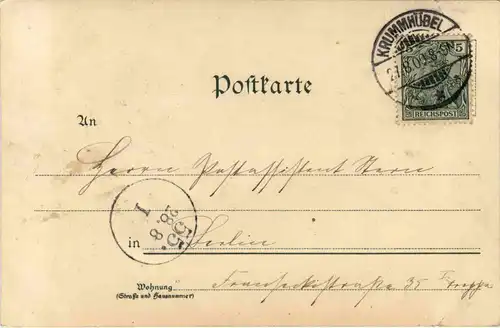 KRUMMHÜBEL
5
REICHSPOST
Postkarte
An
Herrn Postassistent Stern
I
28. 8
55.
in Berlin
Wohnung
(Straße und Hausnummer)
35 I Treppe